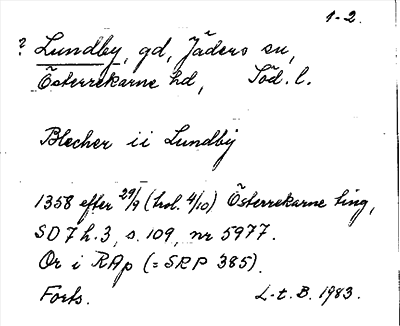 1-2.
? Lundby, gd, Jäders sn,
Österrekarne hd, Söd. l.
Blecher ii Lundby
1358 efter 29/9 (trol. 4/10) Österrekarne ting,
SD 7 h.3, s. 109, nr 5977.
Or i RAp (= SRP 385).
Forts. L-t. B. 1983.